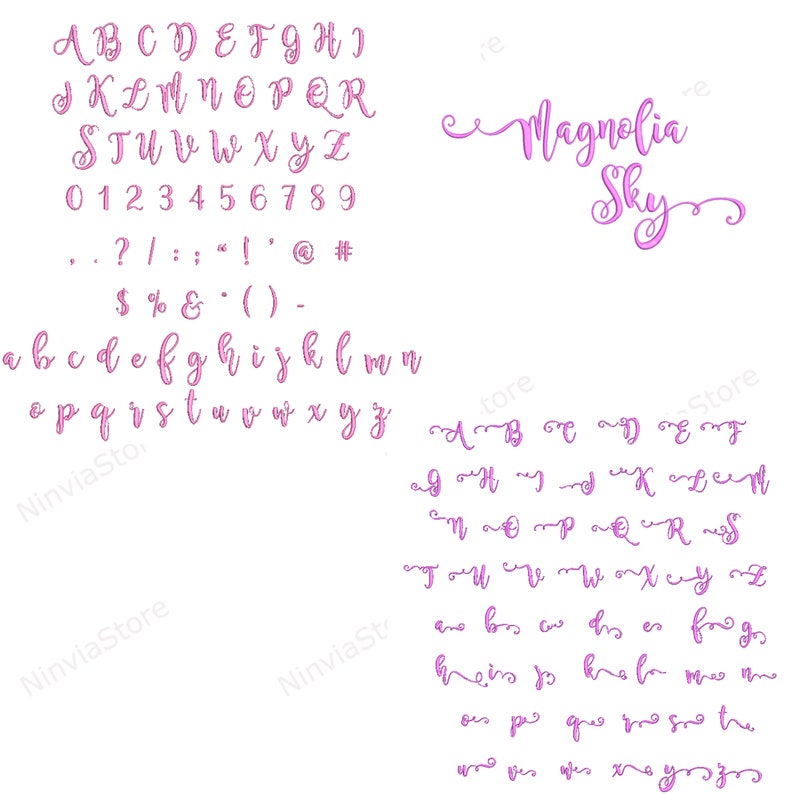 A B C D E F G H I
J K L M N O P Q R
S T U V W X Y Z
0 1 2 3 4 5 6 7 8 9
, . ? / : ; “ ! ’ @ #
$ % & * ( ) -
a b c d e f g h i j k l m n
o p q r s t u v w x y z
Magnolia
Sky
A B C D E F
G H I J K L M
N O P Q R S
T U V W X Y Z
a b c d e f g
h i j k l m n
o p q r s t
u v w x y z
NinviaStore
NinviaStore
NinviaStore
NinviaStore